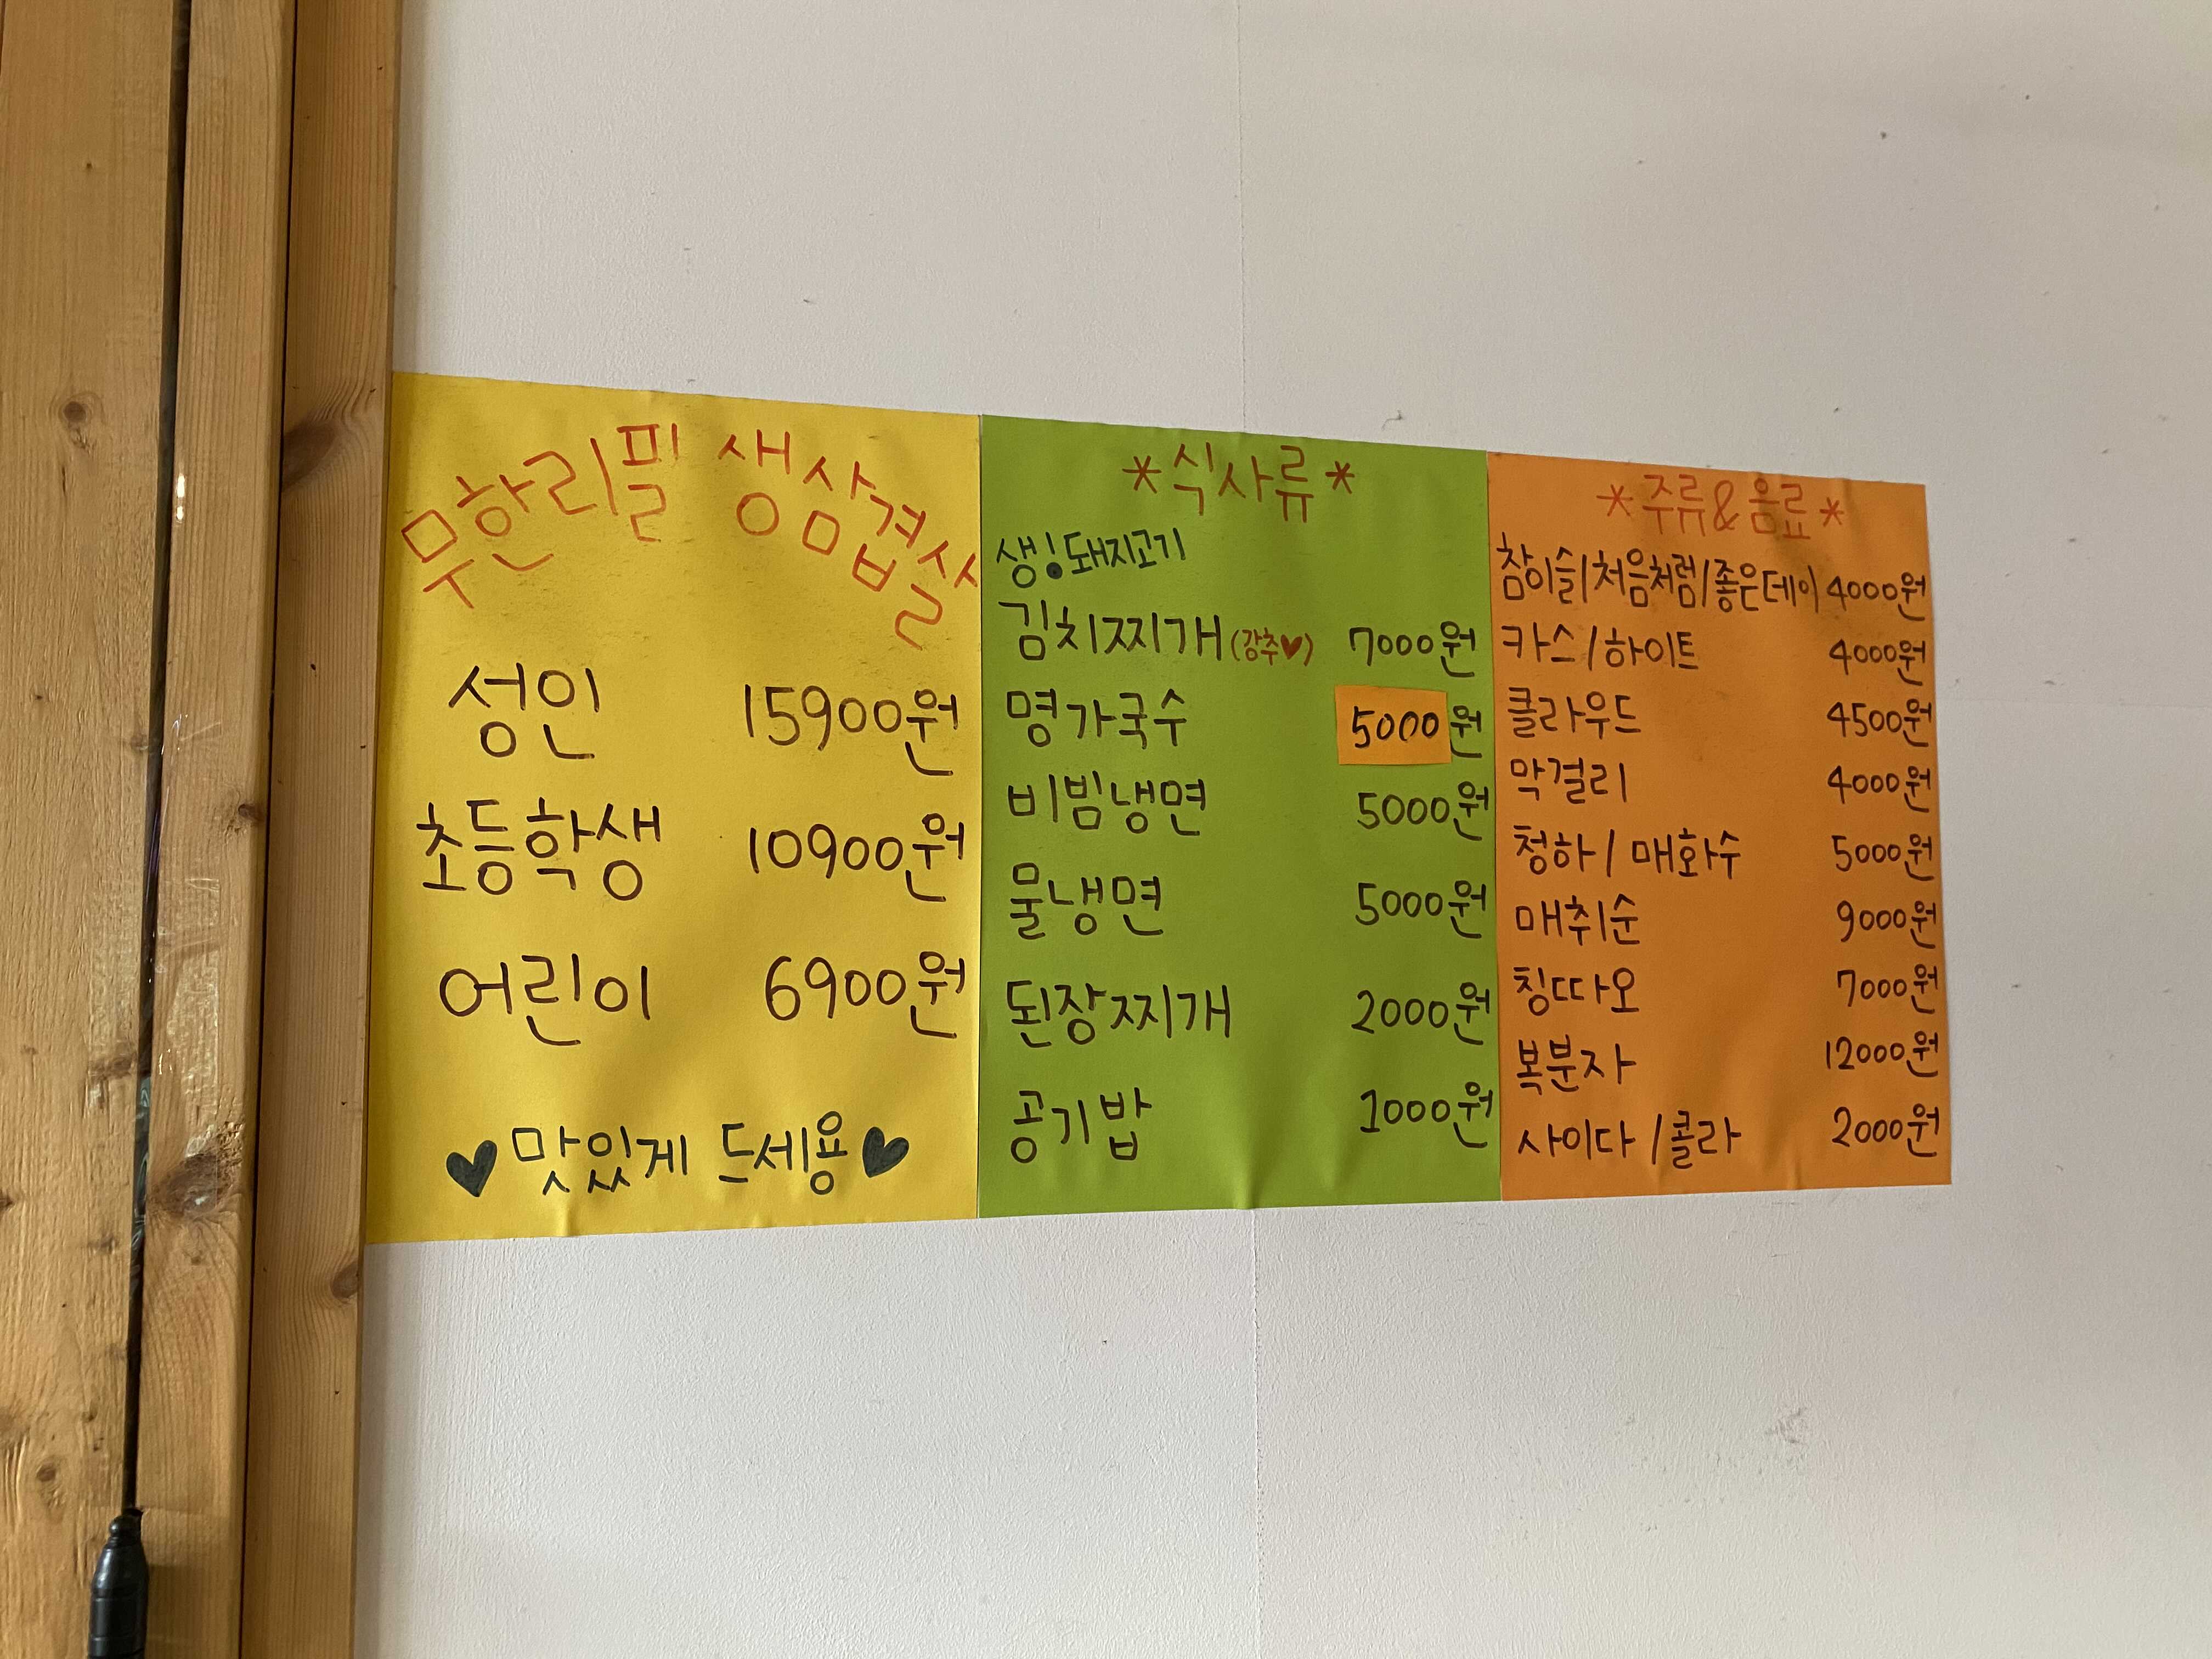 무한리필 생삼겹살
성인 15900원
초등학생 10900원
어린이 6900원
♥맛있게 드세용♥
*식사류*
생!돼지고기
김치찌개(강추♥) 7000원
명가국수 5000원
비빔냉면 5000원
물냉면 5000원
된장찌개 2000원
공기밥 1000원
*주류&음료*
참이슬/처음처럼/좋은데이 4000원
카스/하이트 4000원
클라우드 4500원
막걸리 4000원
청하/매화수 5000원
매취순 9000원
칭따오 7000원
복분자 12000원
사이다/콜라 2000원